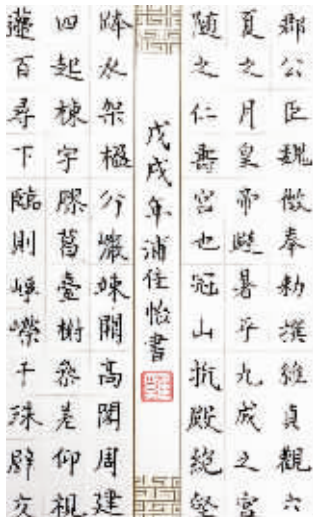 郡公臣魏徵奉勑撰維貞觀六
夏之月皇帝避暑乎九成之宮
隨之仁壽宮也冠山抗殿絶壑
戊戌年浦佳怡書
跨水架楹分巖竦闕高閣周建
四起棟宇膠葛臺榭參差仰視
邐百尋下臨則崢嶸千珠壁交